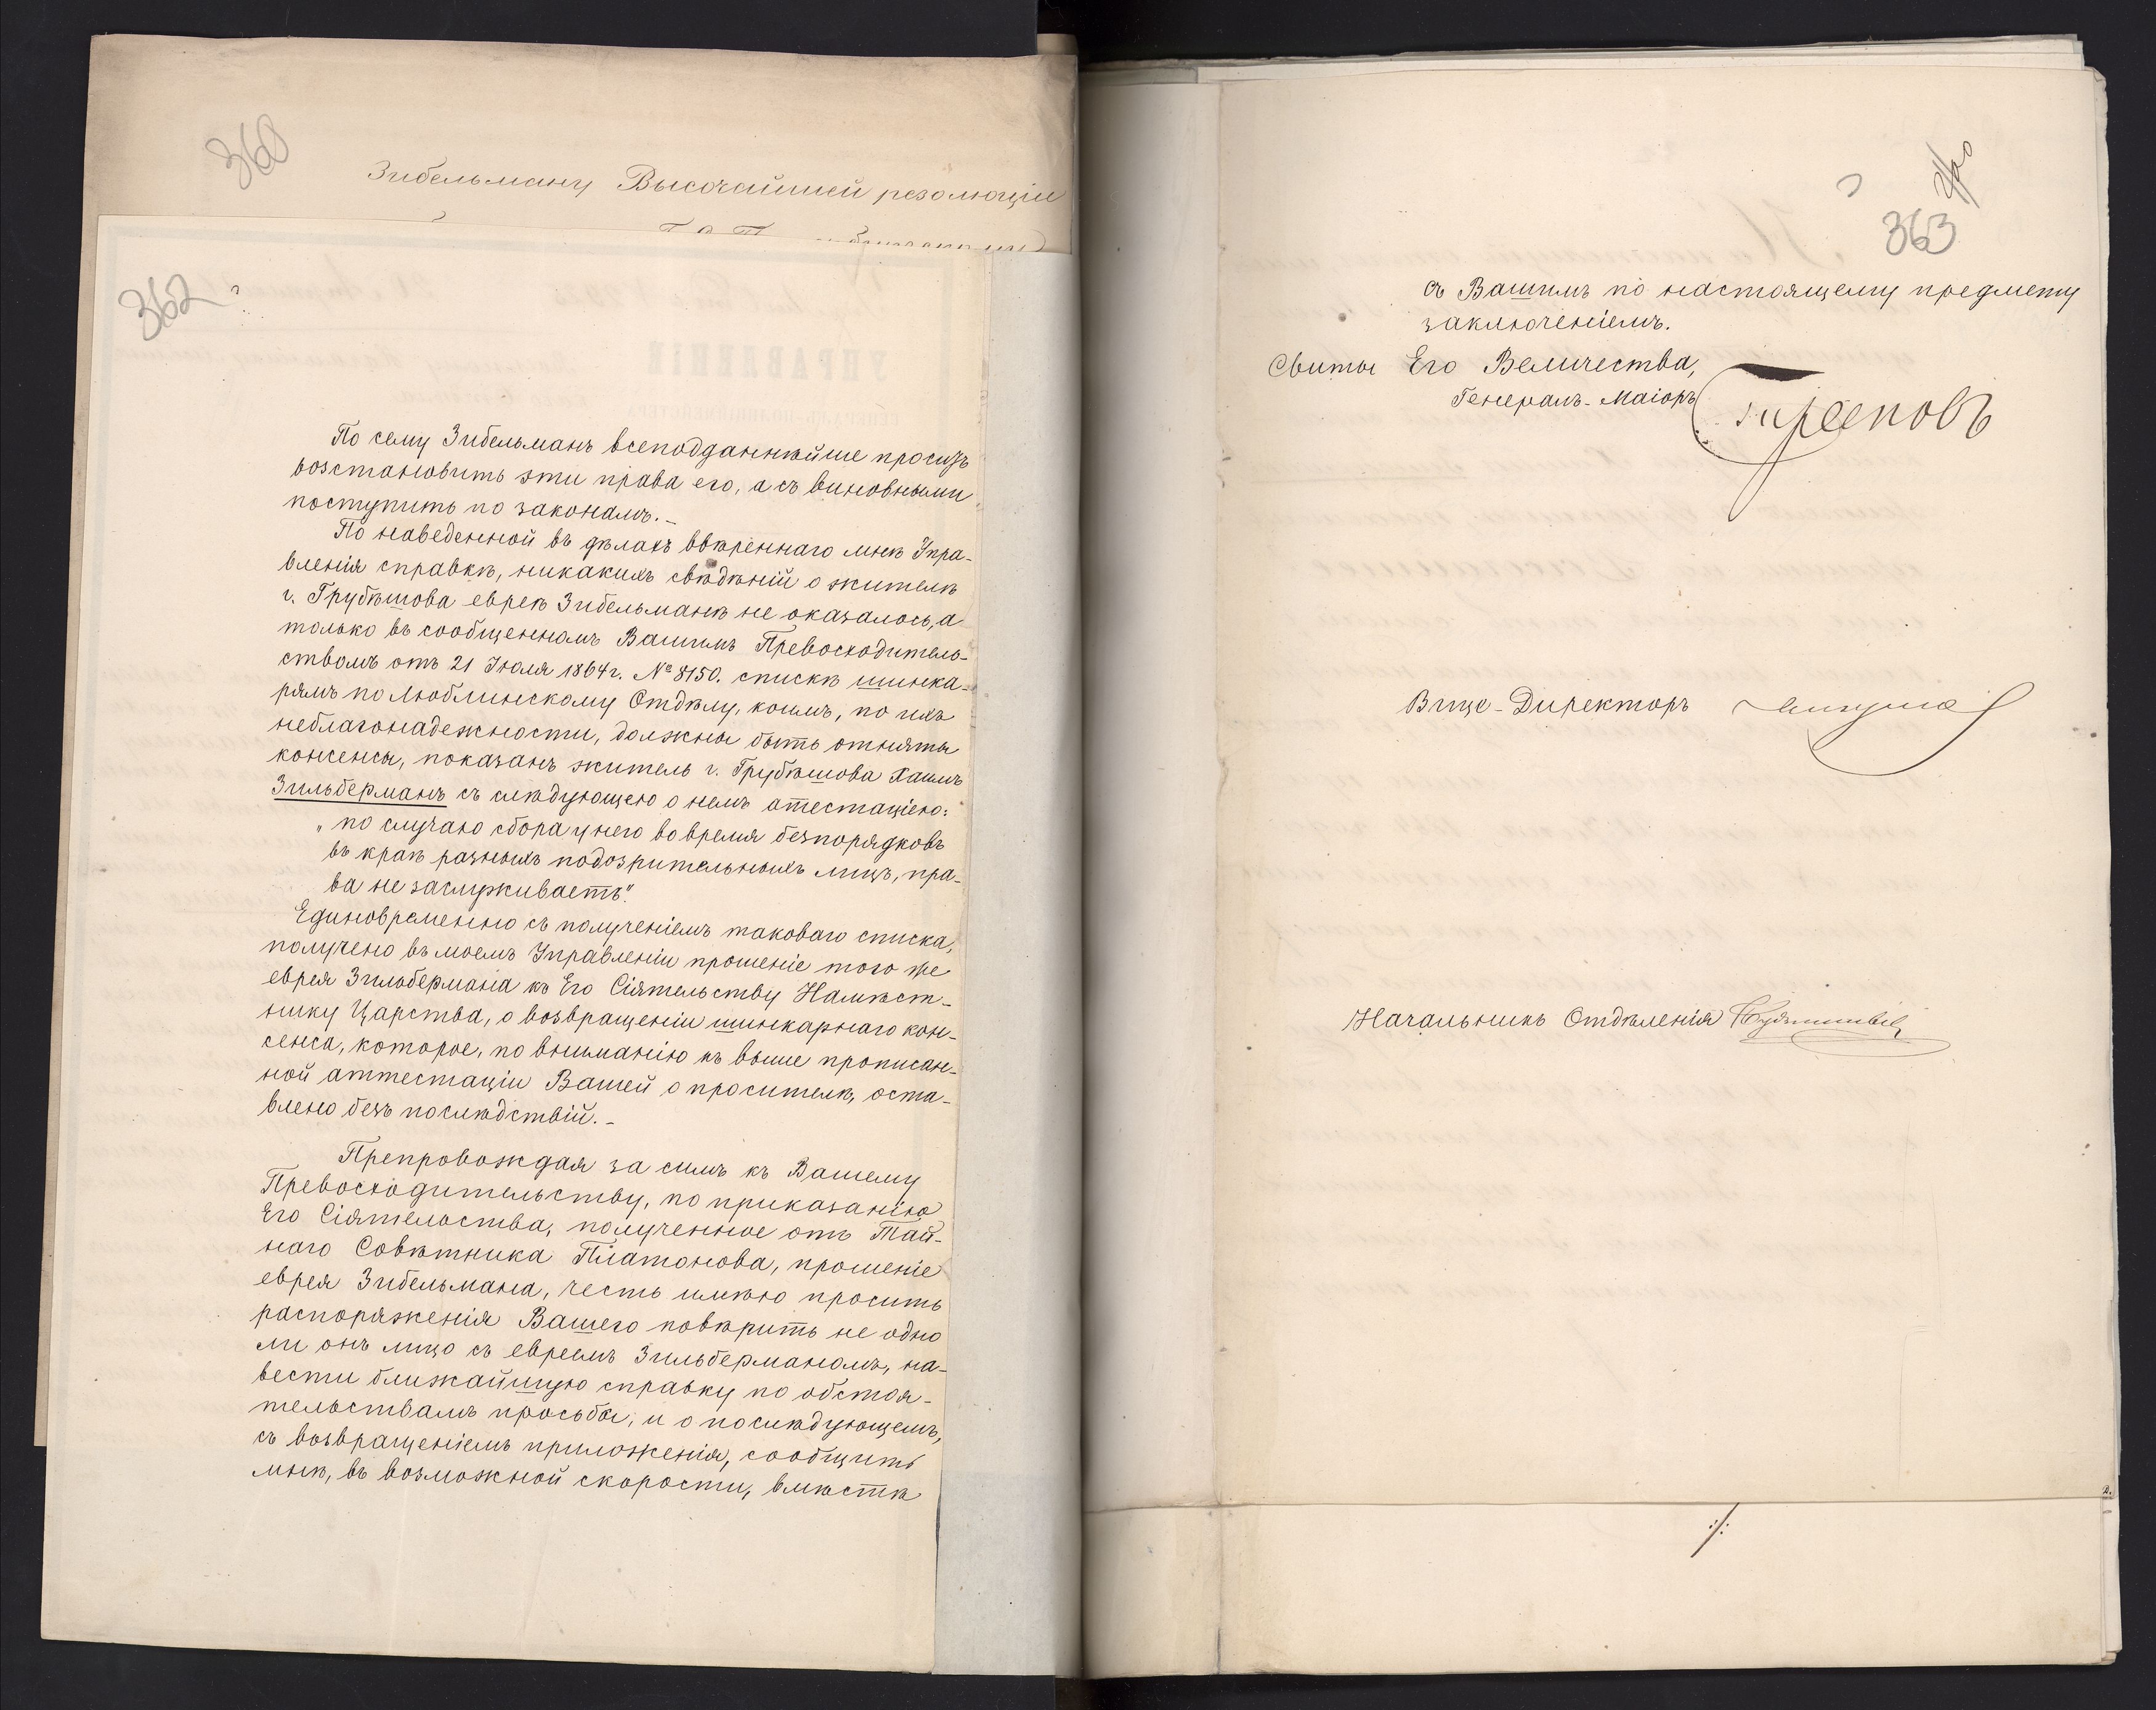 360
Зибельману Высочайшей резолюціи
362
По сему Зибельманъ всеподданнѣйше проситъ
возстановить эти права его, а съ виновными
поступить по законамъ.-
По наведенной въ дѣлахъ ввѣреннаго мнѣ Упра-
вленія справкѣ, никакихъ свѣдѣній о жителѣ
г. Грубѣшова евреѣ Зибельманѣ не оказалось, а
только въ сообщенномъ Вашимъ Превосходитель-
ствомъ отъ 21 Іюля 1864 г. № 8150. спискѣ шинка-
рямъ по Люблинскому Отдѣлу, коимъ, по ихъ
неблагонадежности, должны быть отняты
консенсы, показанъ житель г. Грубѣшова Хаимъ
Зильберманъ съ слѣдующею о немъ атестаціею:
„по случаю сбора у него во время безпорядковъ
въ краѣ разныхъ подозрительныхъ лицъ, пра-
ва не заслуживаетъ".
Единовременно съ полученіемъ таковаго списка,
получено въ моемъ Управленіи прошеніе того же
еврея Зильбермана къ Его Сіятельству Намѣст-
нику Царства, о возвращеніи шинкарнаго кон-
сенса, которое, по вниманію къ выше прописан-
ной аттестаціи Вашей о просителѣ, оста-
влено безъ послѣдствій.-
Препровождая за симъ къ Вашему
Превосходительству, по приказанію
Его Сіятельства, полученное отъ Тай-
наго Совѣтника Платонова, прошеніе
еврея Зибельмана, честь имѣю просить
распоряженія Вашего повѣрить не одно
ли онъ лицо съ евреемъ Зильберманомъ, на-
вести ближайшую справку по обстоя-
тельствамъ просьбы, и о послѣдующемъ,
съ возвращеніемъ приложенія, сообщить
мнѣ, въ возможной скорости, вмѣстѣ
363
съ Вашимъ по настоящему предмету
заключеніемъ.
Свиты Его Величества,
Генералъ-Маіоръ
Вице-Директоръ
Начальникъ Отдѣленія